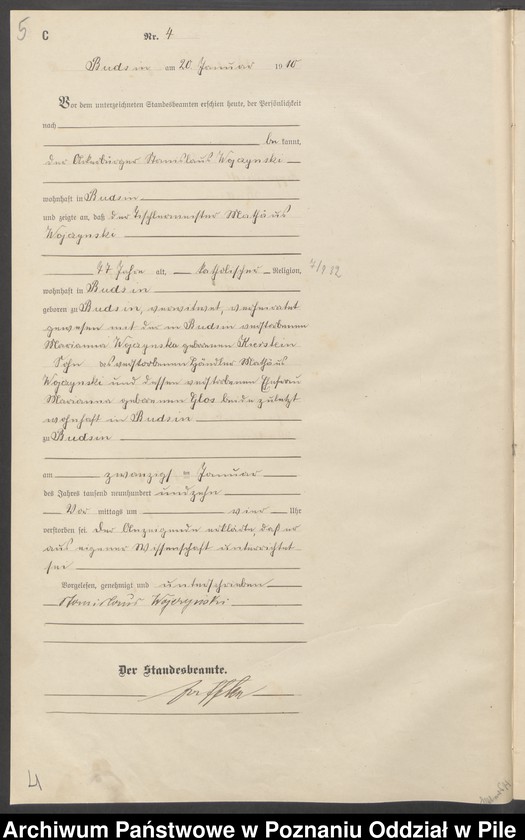 5
C Nr. 4
Budsin am 20. Januar 1910
Vor dem unterzeichneten Standesbeamten erschien heute, der Persönlichkeit
nach
be kannt,
der Ackerbürger Stanislaus Wojczynski
wohnhaft in Budsin
und zeigte an, daß der Tischlermeister Mathäus
Wojczynski
77 Jahre alt, katholischer Religion,
wohnhaft in Budsin
geboren zu Budsin, verwitwet, verheiratet
gewesen mit der in Budsin verstorbenen
Marianna Wojczynska geborenen Kierstein
Sohn des verstorbenen Händler Mathäus
Wojczynski und dessen verstorbenen Ehefrau
Marianna geborenen Glos beide zuletzt
wohnhaft in Budsin
zu Budsin
am zwanzigsten Januar
des Jahres tausend neunhundert und zehn
Vor mittags um vier Uhr
verstorben sei. Der Anzeigende erklärte, daß er
aus eigener Wissenschaft unterrichtet
sei
Vorgelesen, genehmigt und unterschrieben
Stanislaus Wojczyński
Der Standesbeamte.
4
Archiwum Państwowe w Poznaniu Oddział w Pile